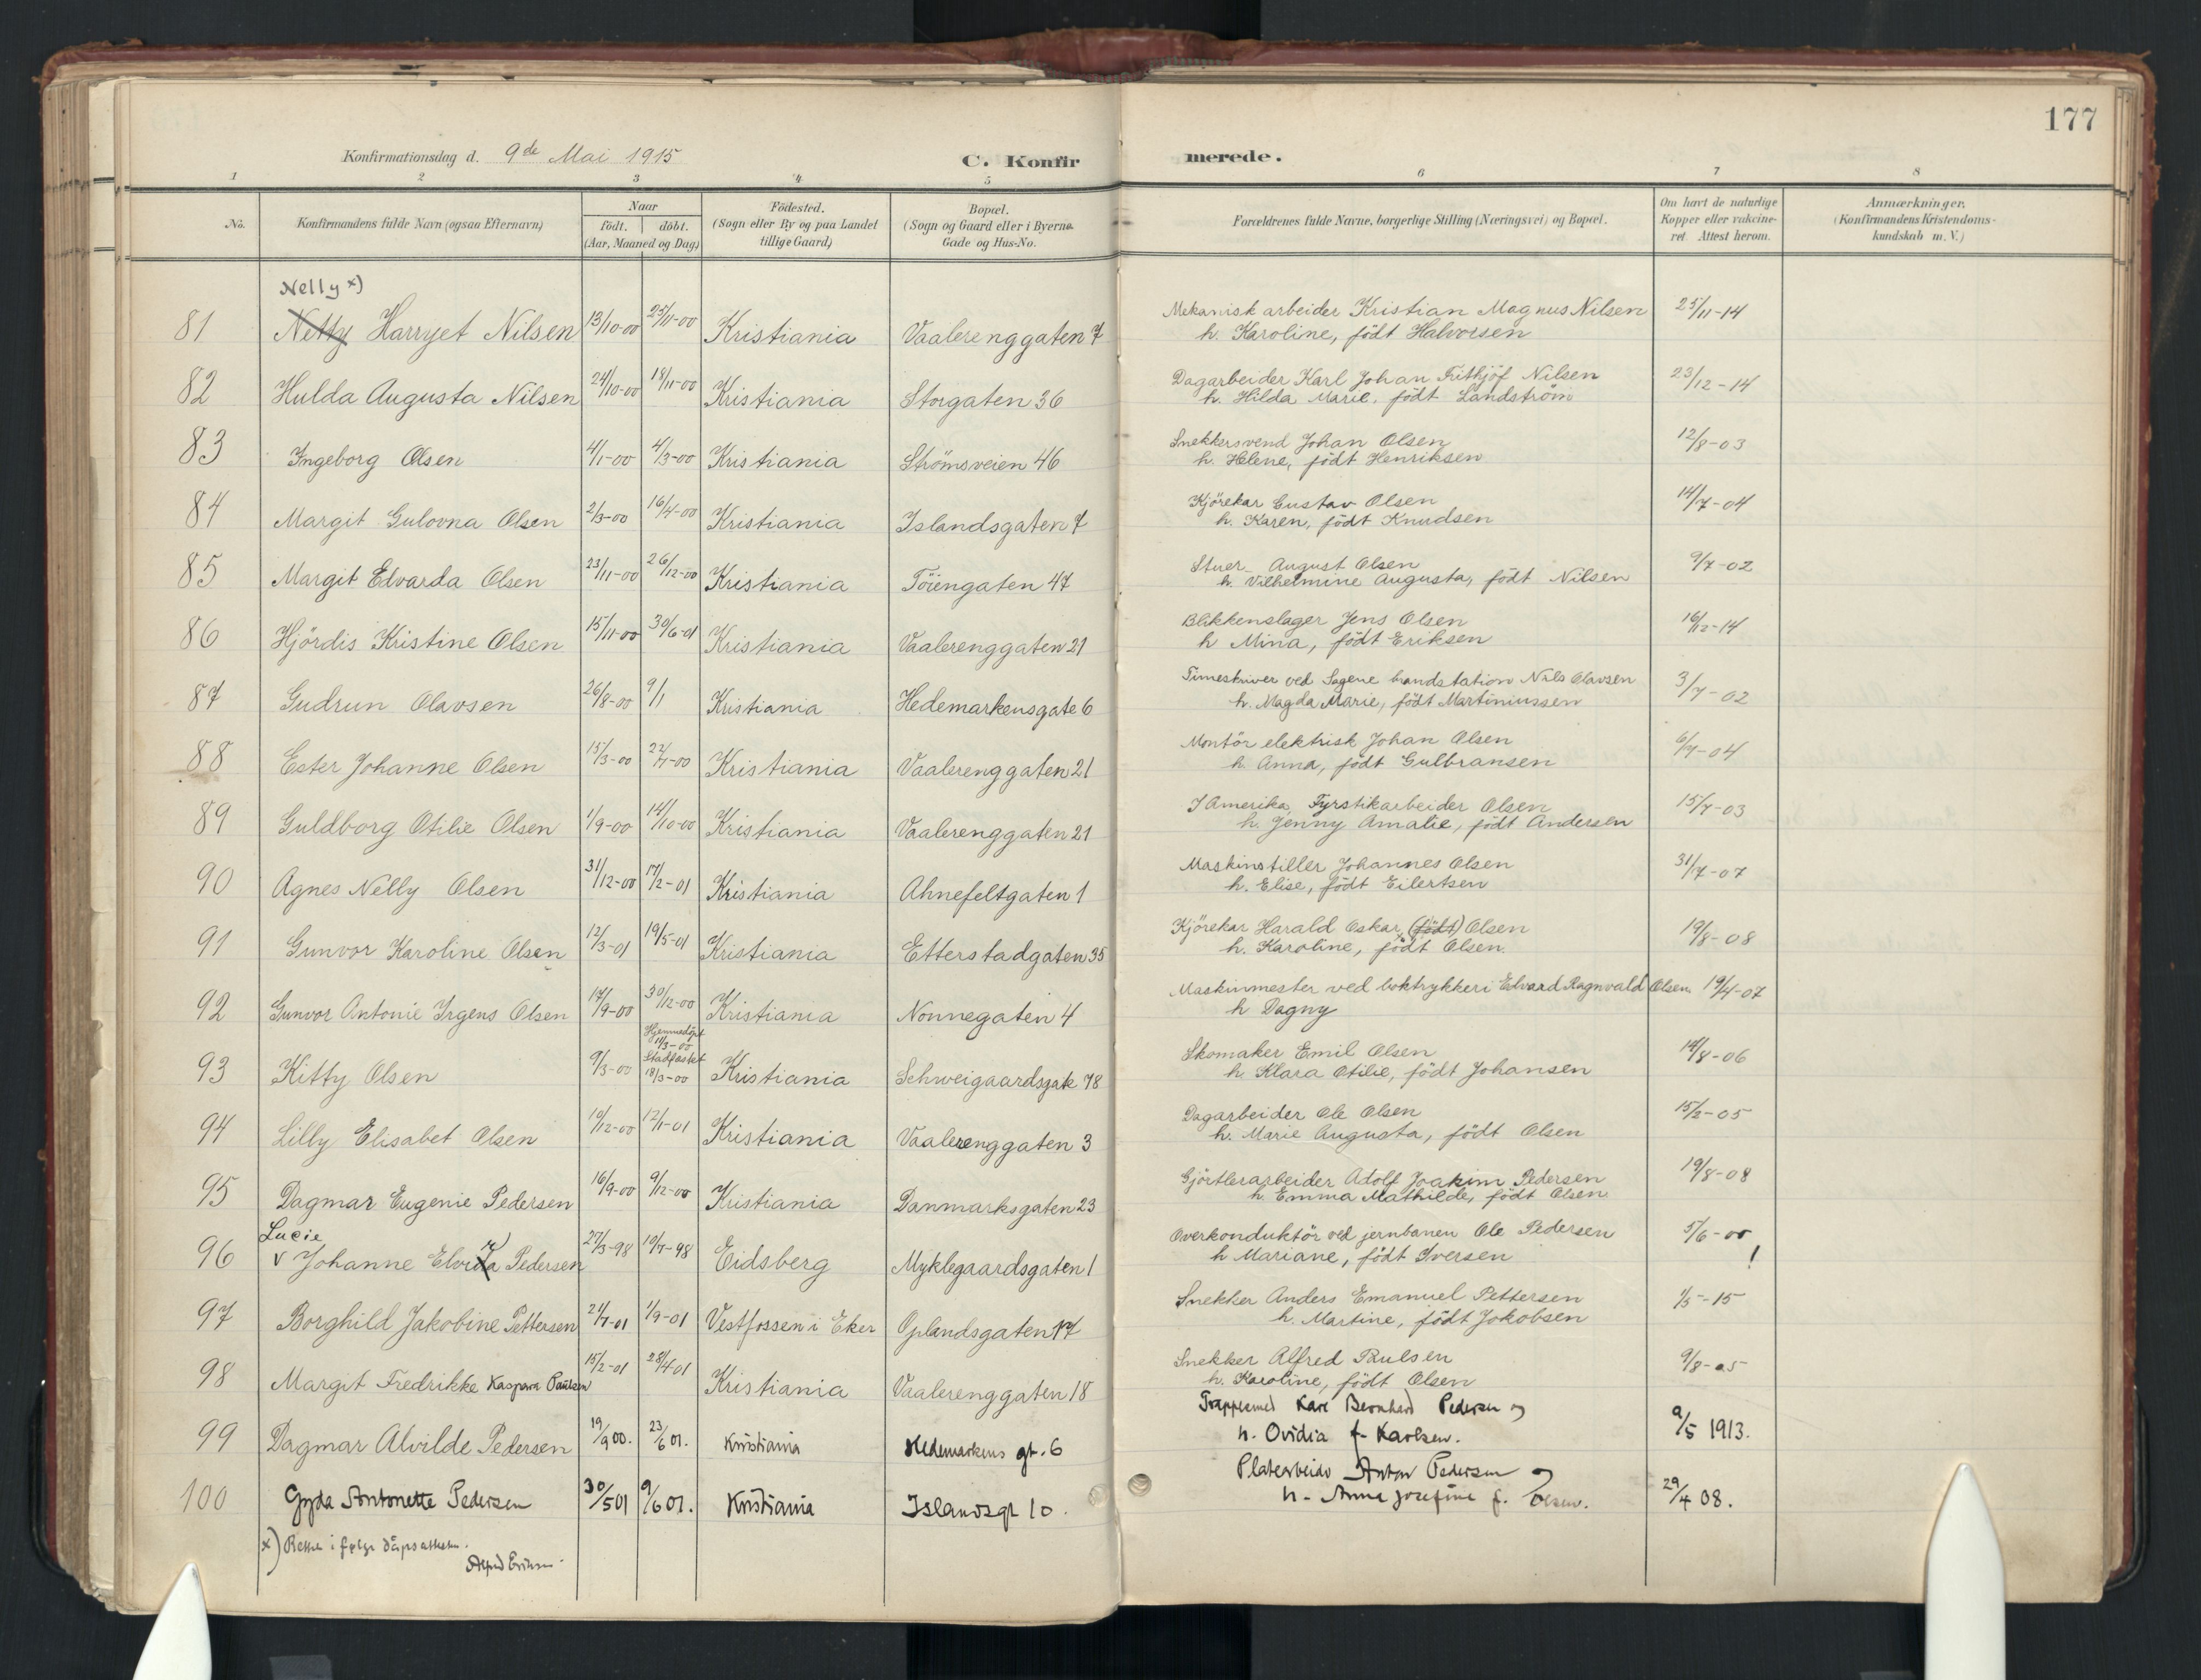 177
Konfirmationsdag d. 9de Mai 1915 C. Konfirmerede.
1 2 3 4 5 6 7 8
No. Konfirmandens fulde Navn (ogsaa Efternavn) Naar födt. döbt. (Aar, Maaned og Dag) Födested. (Sogn eller By og paa Landet tillige Gaard) Bopæl. (Sogn og Gaard eller i Byerne Gade og Hus-No. Forældrenes fulde Navne, borgerlige Stilling (Næringsvei) og Bopæl. Om havt de naturlige Kopper eller vakcineret. Attest herom. Anmærkninger. (Konfirmandens Kristendomskundskab m. V.)
Nelly x)
81 Netty Harryet Nilsen 13/10-00 25/11-00 Kristiania Vaalerenggaten 7 Mekanisk arbeider Kristian Magnus Nilsen 25/11-14
h. Karoline, födt Halvorsen
82 Hulda Augusta Nilsen 24/10-00 18/11-00 Kristiania Storgaten 36 Dagarbeider Karl Johan Frithjöf Nilsen 23/12-14
h. Hilda Marie, födt Landström
83 Ingeborg Olsen 4/1-00 4/3-00 Kristiania Strömsveien 46 Snekkersvend Johan Olsen 12/8-03
h. Helene, födt Henriksen
84 Margit Gulovna Olsen 2/3-00 16/4-00 Kristiania Islandsgaten 7 Kjörekar Gustav Olsen 14/7-04
h. Karen, födt Knudsen
85 Margit Edvarda Olsen 23/11-00 26/12-00 Kristiania Töiengaten 47 Stuer August Olsen 9/7-02
h. Vilhelmine Augusta, födt Nilsen
86 Hjördis Kristine Olsen 15/11-00 30/6-01 Kristiania Vaalerenggaten 21 Blikkenslager Jens Olsen 16/12-14
h Mina, födt Eriksen
87 Gudrun Olavsen 26/8-00 9/1 Kristiania Hedemarkensgate 6 Timeskriver ved Sagene brandstation Nils Olavsen 3/7-02
h. Magda Marie, födt Martiniussen
88 Ester Johanne Olsen 15/3-00 22/7-00 Kristiania Vaalerenggaten 21 Montör elektrisk Johan Olsen 6/7-04
h. Anna, födt Gulbransen
89 Guldborg Otilie Olsen 1/9-00 14/10-00 Kristiania Vaalerenggaten 21 I Amerika, Fyrstikarbeider Olsen 15/7-03
h. Jenny Amalie, födt Andersen
90 Agnes Nelly Olsen 31/12-00 17/2-01 Kristiania Ahnefeltgaten 1 Maskinstiller Johannes Olsen 31/7-07
h. Elise, födt Eilertsen
91 Gunvor Karoline Olsen 12/3-01 19/5-01 Kristiania Etterstadgaten 35 Kjörekar Harald Oskar (födt) Olsen 19/8-08
h. Karoline, födt Olsen.
92 Gunvor Antonie Irgens Olsen 17/9-00 30/12-00 Kristiania Nonnegaten 4 Maskinmester ved boktrykkeri Edvard Ragnvald Olsen 19/4-07
h Dagny
93 Kitty Olsen 9/3-00 Hjemmedöpt 11/3-00 Stadfæstet 18/3-00 Kristiania Schweigaardsgate 78 Skomaker Emil Olsen 14/8-06
h. Klara Otilie, födt Johansen
94 Lilly Elisabet Olsen 10/12-00 12/1-01 Kristiania Vaalerenggaten 3 Dagarbeider Ole Olsen 15/2-05
h. Marie Augusta, födt Olsen
95 Dagmar Eugenie Pedersen 16/9-00 9/12-00 Kristiania Danmarksgaten 23 Gjörtlerarbeider Adolf Joakim Pedersen 19/8-08
h. Emma Mathilde, födt Olsen
Lucie
96 v Johanne Elvida Pedersen 27/3-98 10/7-98 Eidsberg Myklegaardsgaten 1 Overkonduktör ved jernbanen Ole Pedersen 5/6-00 !
h Mariane, födt Iversen
97 Borghild Jakobine Pettersen 21/7-01 1/9-01 Vestfossen i Eker Oplandsgaten 17 Snekker Anders Emanuel Pettersen 1/5-15
h. Martine, födt Jakobsen
98 Margit Fredrikke Kaspara Paulsen 15/2-01 28/4-01 Kristiania Vaalerenggaten 18 Snekker Alfred Paulsen 9/8-05
h. Karoline, födt Olsen
99 Dagmar Alvilde Pedersen 19/9 00. 23/6 01. Kristiania Hedemarkens gt. 6 Karl Bernhard Pedersen og 9/5 1913.
h. Ovidia f. Karlsen.
100 Gyda Antonette Pedersen 30/5 01 9/6 01. Kristiania Islandsgt 10. Platearbeider Anton Pedersen og 29/4 08.
h. Anna Josefine f. Olsen.
x) Rettet i følge dåpsattesten.
Alfred Eriksen